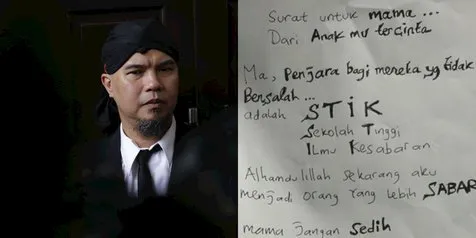 Surat untuk mama ...
Dari Anak mu tercinta
Ma, Penjara bagi mereka yg tidak
Bersalah ...
adalah STIK
Sekolah Tinggi
Ilmu Kesabaran
Alhamdulillah sekarang aku
menjadi orang yang lebih SABAR
mama jangan Sedih